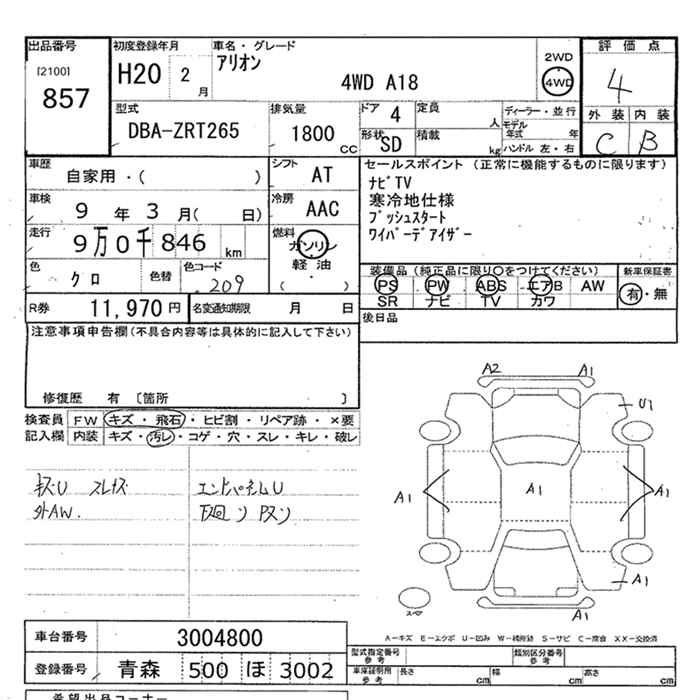 出品番号
[2100]
857
初度登録年月
H20 2月
車名・グレード
アリオン
4WD A18
2WD
4WD
評価点
4
外装 内装
C B
型式
DBA-ZRT265
排気量
1800 CC
ドア 4
定員 人
形状 SD
積載 kg
ディーラー・並行
モデル年式 年
ハンドル 左・右
車歴
自家用・( )
車検
9年3月( 日)
走行
9万0千846km
色
クロ
色替
色コード
209
シフト
AT
冷房
AAC
燃料
ガソリン
軽油
( ・ )
セールスポイント(正常に機能するものに限ります)
ナビTV
寒冷地仕様
プッシュスタート
ワイパーデアイザー
装備品(純正品に限り○をつけてください)
PS PW ABS エアB AW
SR ナビ TV カワ
新車保証書
有・無
R券 11,970円
名変通知期限 月 日
後日品
注意事項申告欄(不具合内容等は具体的に記入して下さい)
修復歴 有 〔箇所 〕
検査員 FW キズ・飛石・ヒビ割・リペア跡・×要
記入欄 内装 キズ・汚レ・コゲ・穴・スレ・キレ・破レ
外AW.
A2 A1
U1
A1 A1 A1
A1
A1
スペア
A-キズ E-エクボ U-凹み W-補修跡 S-サビ C-腐食 XX-交換済
車台番号 3004800
登録番号 青森 500 ほ 3002
型式指定番号
参考
類別区分番号
参考
車庫証明用
参考
長さ cm 幅 cm 高さ cm
希望出品コーナー